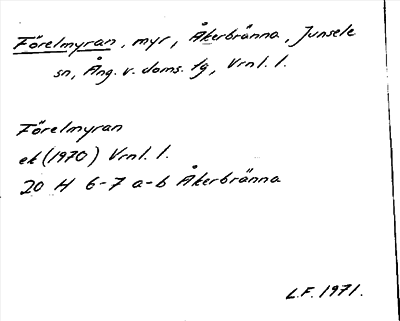 Förelmyran, myr, Åkerbränna, Junsele
sn, Ång. v. doms. tg, Vrnl. l.
Förelmyran
ek (1970) Vrnl. l.
20 H 6-7 a-b Åkerbränna
L.F. 1971.